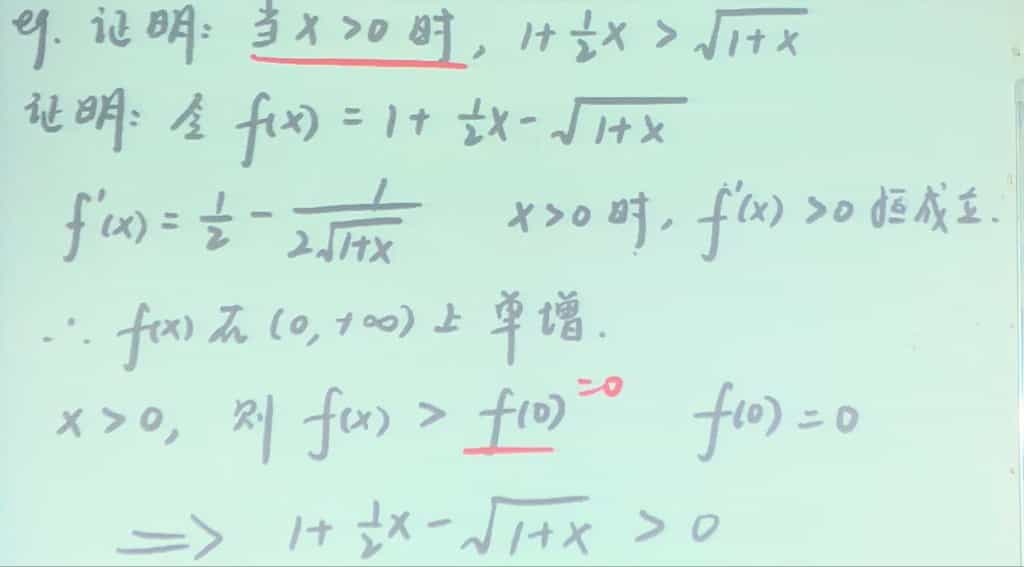 eg. 证明: 当 x > 0 时, 1 + \frac{1}{2}x > \sqrt{1+x}
证明: 令 f(x) = 1 + \frac{1}{2}x - \sqrt{1+x}
f'(x) = \frac{1}{2} - \frac{1}{2\sqrt{1+x}} x > 0 时, f'(x) > 0 恒成立.
∴ f(x) 在 (0, +∞) 上 单增.
x > 0, 则 f(x) > f(0) = 0 f(0) = 0
⟹ 1 + \frac{1}{2}x - \sqrt{1+x} > 0